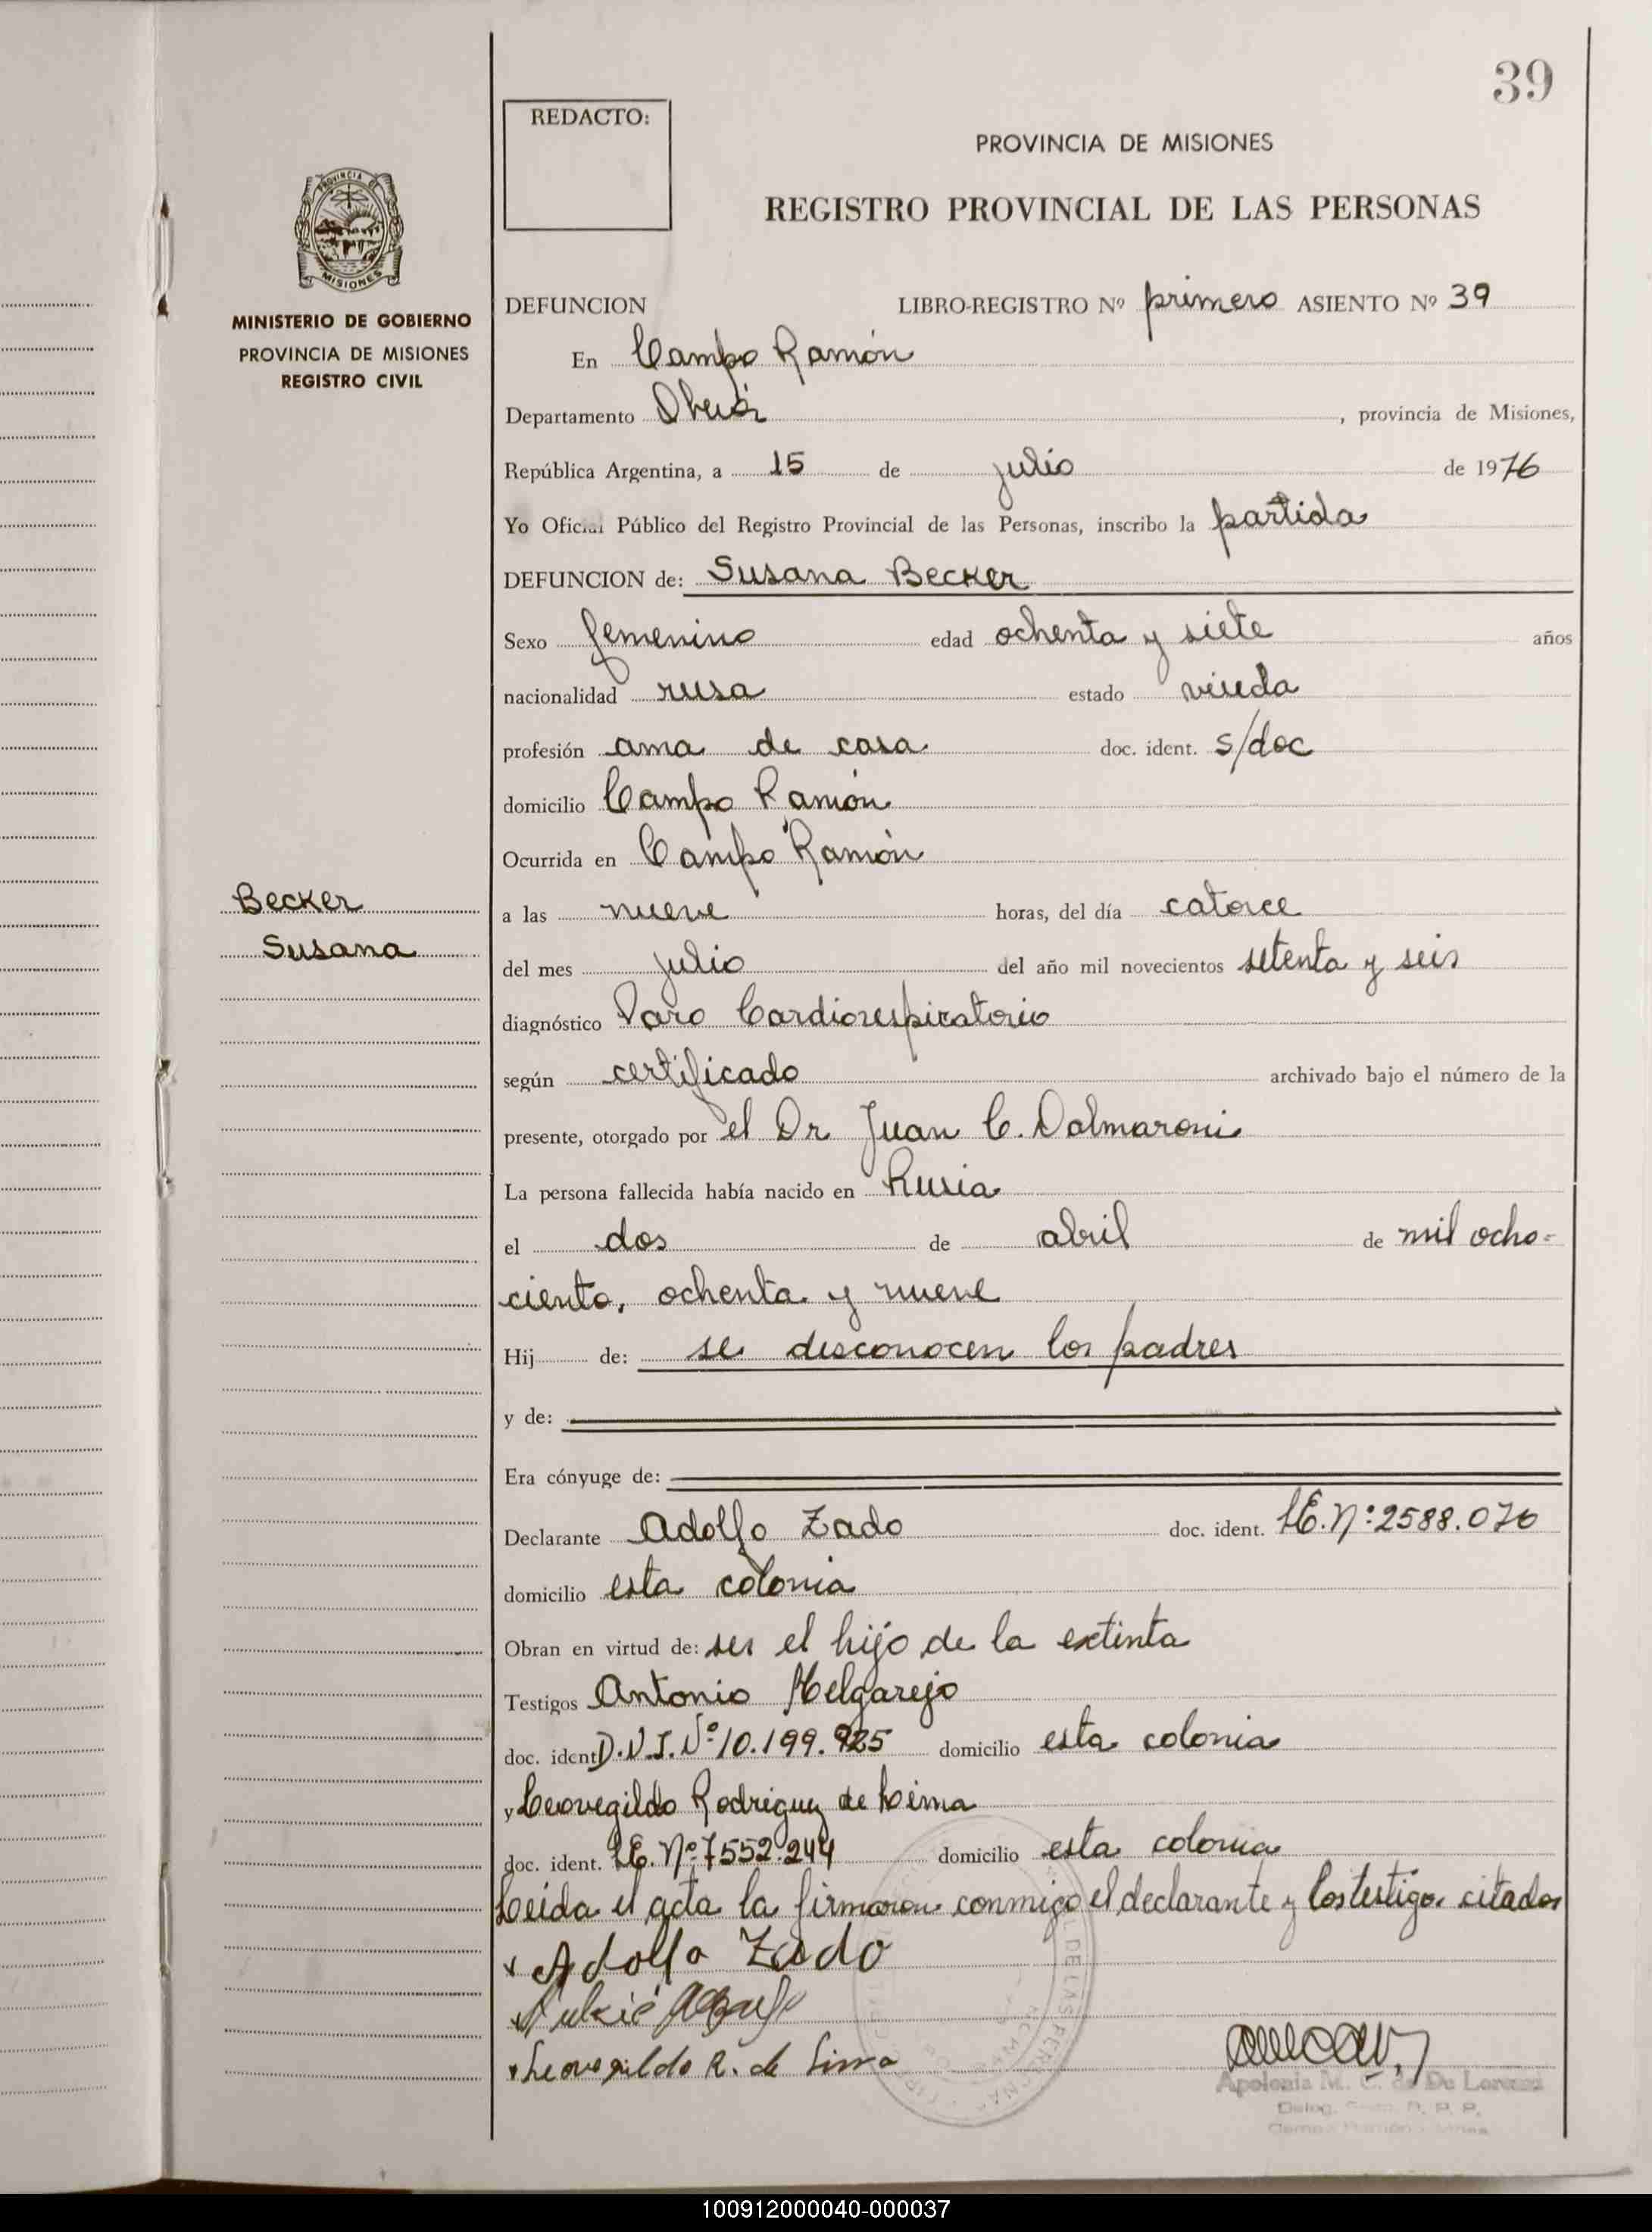 39
REDACTO:
PROVINCIA DE MISIONES
REGISTRO PROVINCIAL DE LAS PERSONAS
PROVINCIA DE
MISIONES
MINISTERIO DE GOBIERNO
PROVINCIA DE MISIONES
REGISTRO CIVIL
DEFUNCION LIBRO-REGISTRO Nº primero ASIENTO Nº 39
En Campo Ramón
Departamento Oberá, provincia de Misiones,
República Argentina, a 15 de julio de 1976
Yo Oficial Público del Registro Provincial de las Personas, inscribo la partida
DEFUNCION de: Susana Becker
Sexo femenino edad ochenta y siete años
nacionalidad rusa estado viuda
profesión ama de casa doc. ident. s/doc
domicilio Campo Ramón
Ocurrida en Campo Ramón
Becker
Susana
a las nueve horas, del día catorce
del mes julio del año mil novecientos setenta y seis
diagnóstico Paro Cardiorespiratorio
según certificado archivado bajo el número de la
presente, otorgado por el Dr Juan C. Dalmaroni
La persona fallecida había nacido en Rusia
el dos de abril de mil ocho-
cientos ochenta y nueve
Hij de: se desconocen los padres
y de:
Era cónyuge de:
Declarante Adolfo Zado doc. ident. LE. Nº 2588.070
domicilio esta colonia
Obran en virtud de: ser el hijo de la extinta
Testigos Antonio Melgarejo
doc. ident D.N.I. Nº 10.199.925 domicilio esta colonia
y Leovegildo Rodriguez de Lima
doc. ident. LE. Nº 7552.244 domicilio esta colonia
Leida el acta la firmaron conmigo el declarante y los testigos citados
x Adolfo Zado
x Leovegildo R. de Lima
DE LAS PERSONAS
Apolonia M. C. de De Lorenzi
Deleg. R. P. P.
Campo Ramón
100912000040-000037